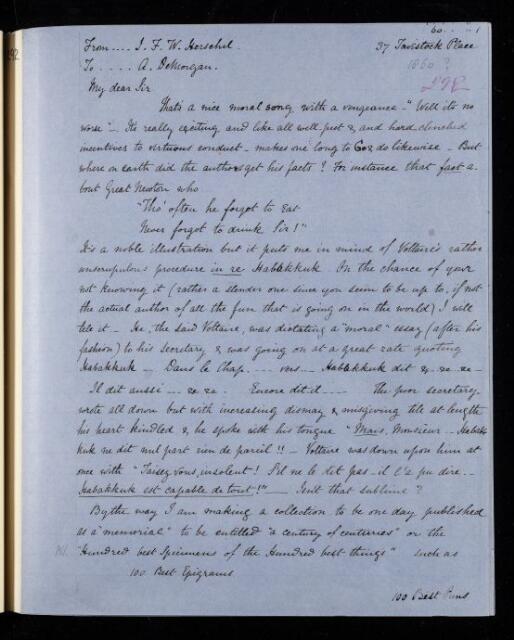 60
1
From .... J. F. W. Herschel. 37 Tavistock Place
To ..... A. DeMorgan. 1860?
My dear Sir
That's a nice moral song with a vengeance - "Will it's no
worse" - Its really exciting and like all well put & and hard clenched
incentives to virtuous conduct - makes one long to Go & do likewise - But
where on earth did the authors get his facts? For instance that fact a-
bout Great Newton who
"Tho' often he forgot to Eat
Never forgot to drink Sir!"
It's a noble illustration but it puts me in mind of Voltaire's rather
unscrupulous procedure in re Habakkuk. On the chance of your
not knowing it (rather a slender one since you seem to be up to, if not
the actual author of all the fun that is going on in the world) I will
tell it - He, the said Voltaire, was dictating a "moral" essay (after his
fashion) to his Secretary & was going on at a great rate quoting
Habakkuk - Dans le Chap. --- vers --- Habakkuk dit &c. &c. &c -
Il dit aussi --- &c &c. Encore dit il --- The poor secretary
wrote all down but with increasing dismay & misgiving till at length
his heart kindled & he spoke with his tongue "Mais, Monsieur -- Habak
kuk ne dit nul part rien de pareil!! - Voltaire was down upon him at
once with "Taisez vous, insolent! S'il ne le dit pas - il l'a pu dire --
Habakkuk est capable de tout!" --- Isn't that sublime?
By the way I am making a collection to be one day published
as a "memorial" to be entitled "a century of centuries" or the
"Hundred best Specimens of the Hundred best things" such as
100 Best Epigrams
100 Best Puns